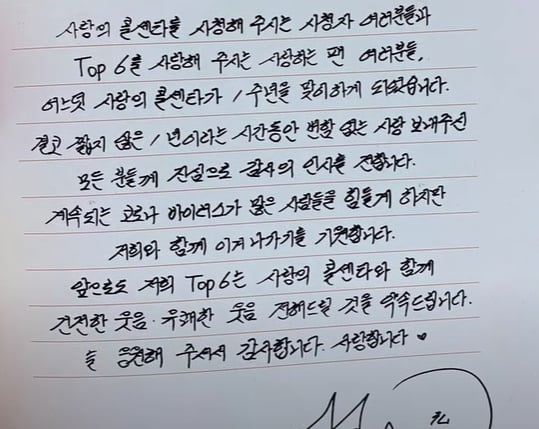 사랑의 콜센타를 시청해 주시는 시청자 여러분들과
Top 6를 사랑해 주시는 사랑하는 팬 여러분들,
어느덧 사랑의 콜센타가 1주년을 맞이하게 되었습니다.
결코 짧지 않은 1년이라는 시간동안 변함 없는 사랑 보내주신
모든 분들께 진심으로 감사의 인사를 전합니다.
계속되는 코로나 바이러스가 많은 사람들을 힘들게 하지만
저희와 함께 이겨 나가기를 기원합니다.
앞으로도 저희 Top 6는 사랑의 콜센타와 함께
건전한 웃음·유쾌한 웃음 전해드릴 것을 약속드립니다.
늘 응원해 주셔서 감사합니다. 사랑합니다 ♥